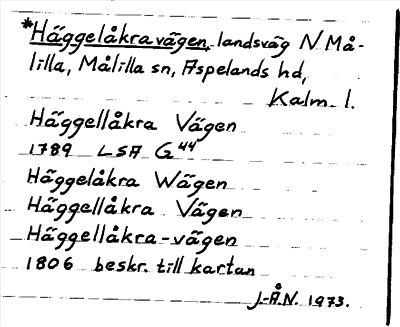 *Häggelåkravägen, landsväg N Må-
lilla, Målilla sn, Aspelands hd,
Kalm. l.
Häggellåkra Vägen
1789 LSA G44
Häggelåkra Wägen
Häggellåkra Vägen
Häggellåkra-vägen
1806 beskr. till kartan
J-Å.N. 1973.